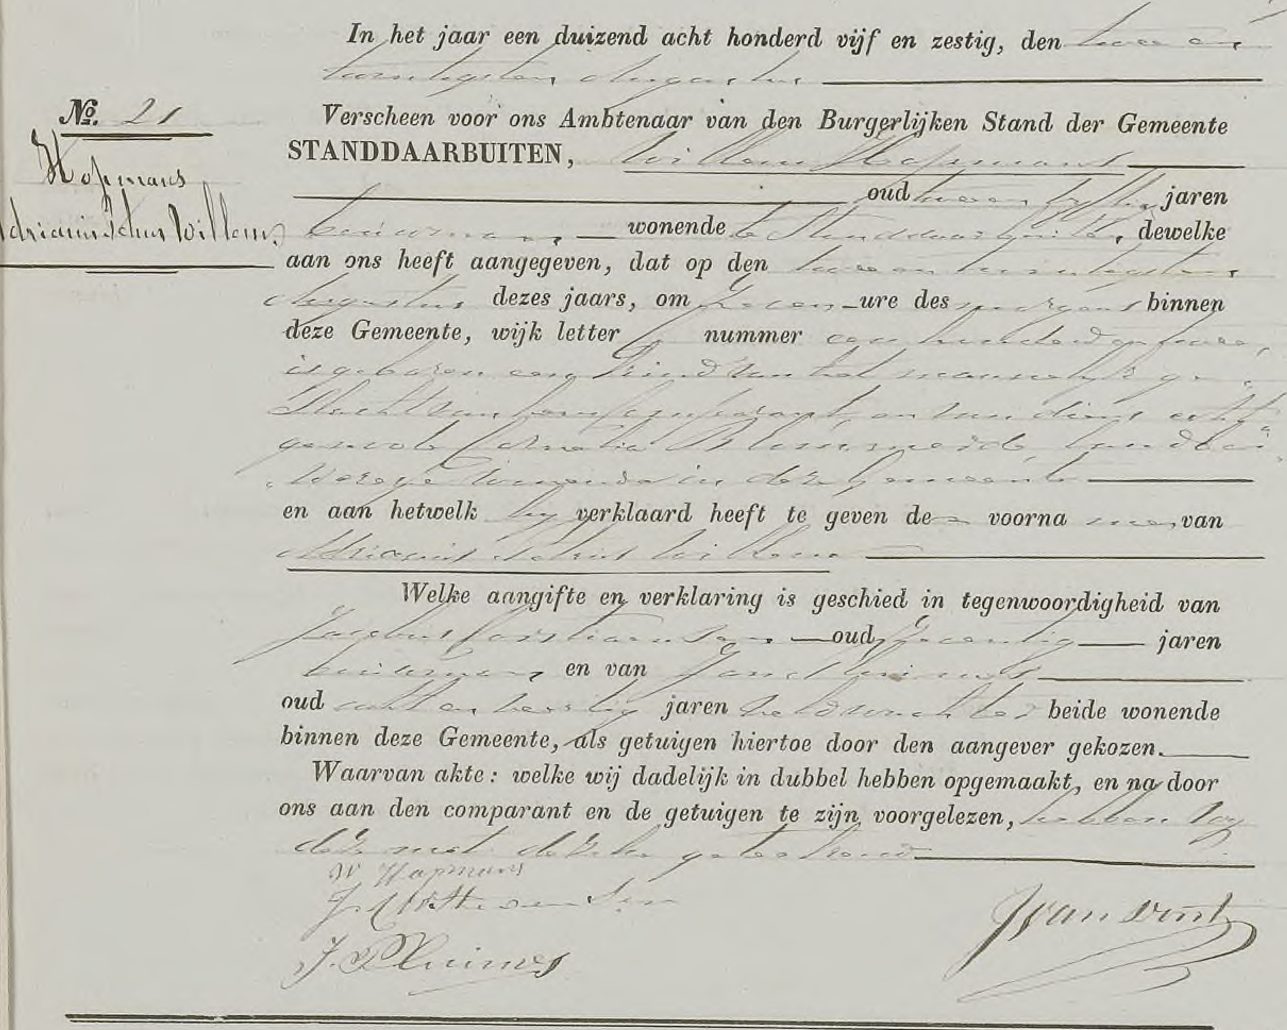 In het jaar een duizend acht honderd vijf en zestig, den twee en
twintigsten Augustus
No. 21
Hopmans
Adrianus Petrus Willem.
Verscheen voor ons Ambtenaar van den Burgerlijken Stand der Gemeente
STANDDAARBUITEN, Willem Hopmans
oud twee en vijftig jaren
bouwman, wonende te Standdaarbuiten, dewelke
aan ons heeft aangegeven, dat op den twee en twintigsten
Augustus dezes jaars, om zeven ure des morgens binnen
deze Gemeente, wijk letter nummer een honderd en twee,
is geboren een kind van het mannelijk ge-
slacht van hem comparant, en van diens echt
genoote Cornelia
wonende in deze Gemeente
en aan hetwelk hij verklaard heeft te geven de voornamen van
Adrianus Petrus Willem
Welke aangifte en verklaring is geschied in tegenwoordigheid van
oud zeventig jaren
bouwman, en van
oud acht en veertig jaren veldwachter beide wonende
binnen deze Gemeente, als getuigen hiertoe door den aangever gekozen.
Waarvan akte: welke wij dadelijk in dubbel hebben opgemaakt, en na door
ons aan den comparant en de getuigen te zijn voorgelezen, hebben wij
deze met dezelve geteekend
W Hopmans
J.
J. Pluimes